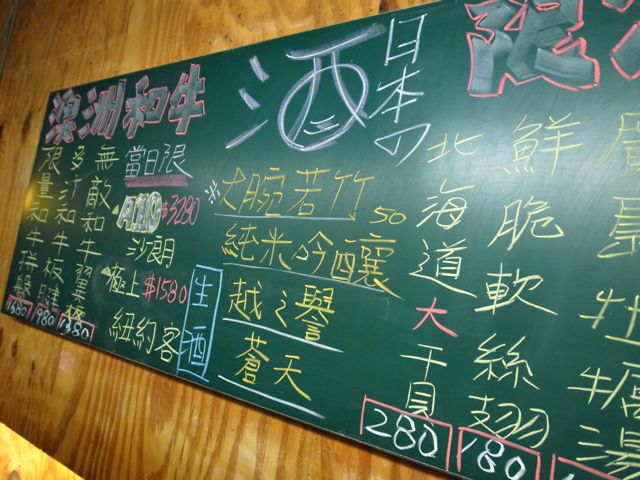 澳洲和牛
限量和牛
多汁和牛板腱
無敵和牛翼板
1680
980
1350
當日限
$3280
沙朗
極上 $1580
紐約客
日本の
酒
※大腕若竹 50
純米吟釀
生酒
越之譽
蒼天
北海道大干貝
280
鮮脆軟絲翅
180
牡蠣湯
限